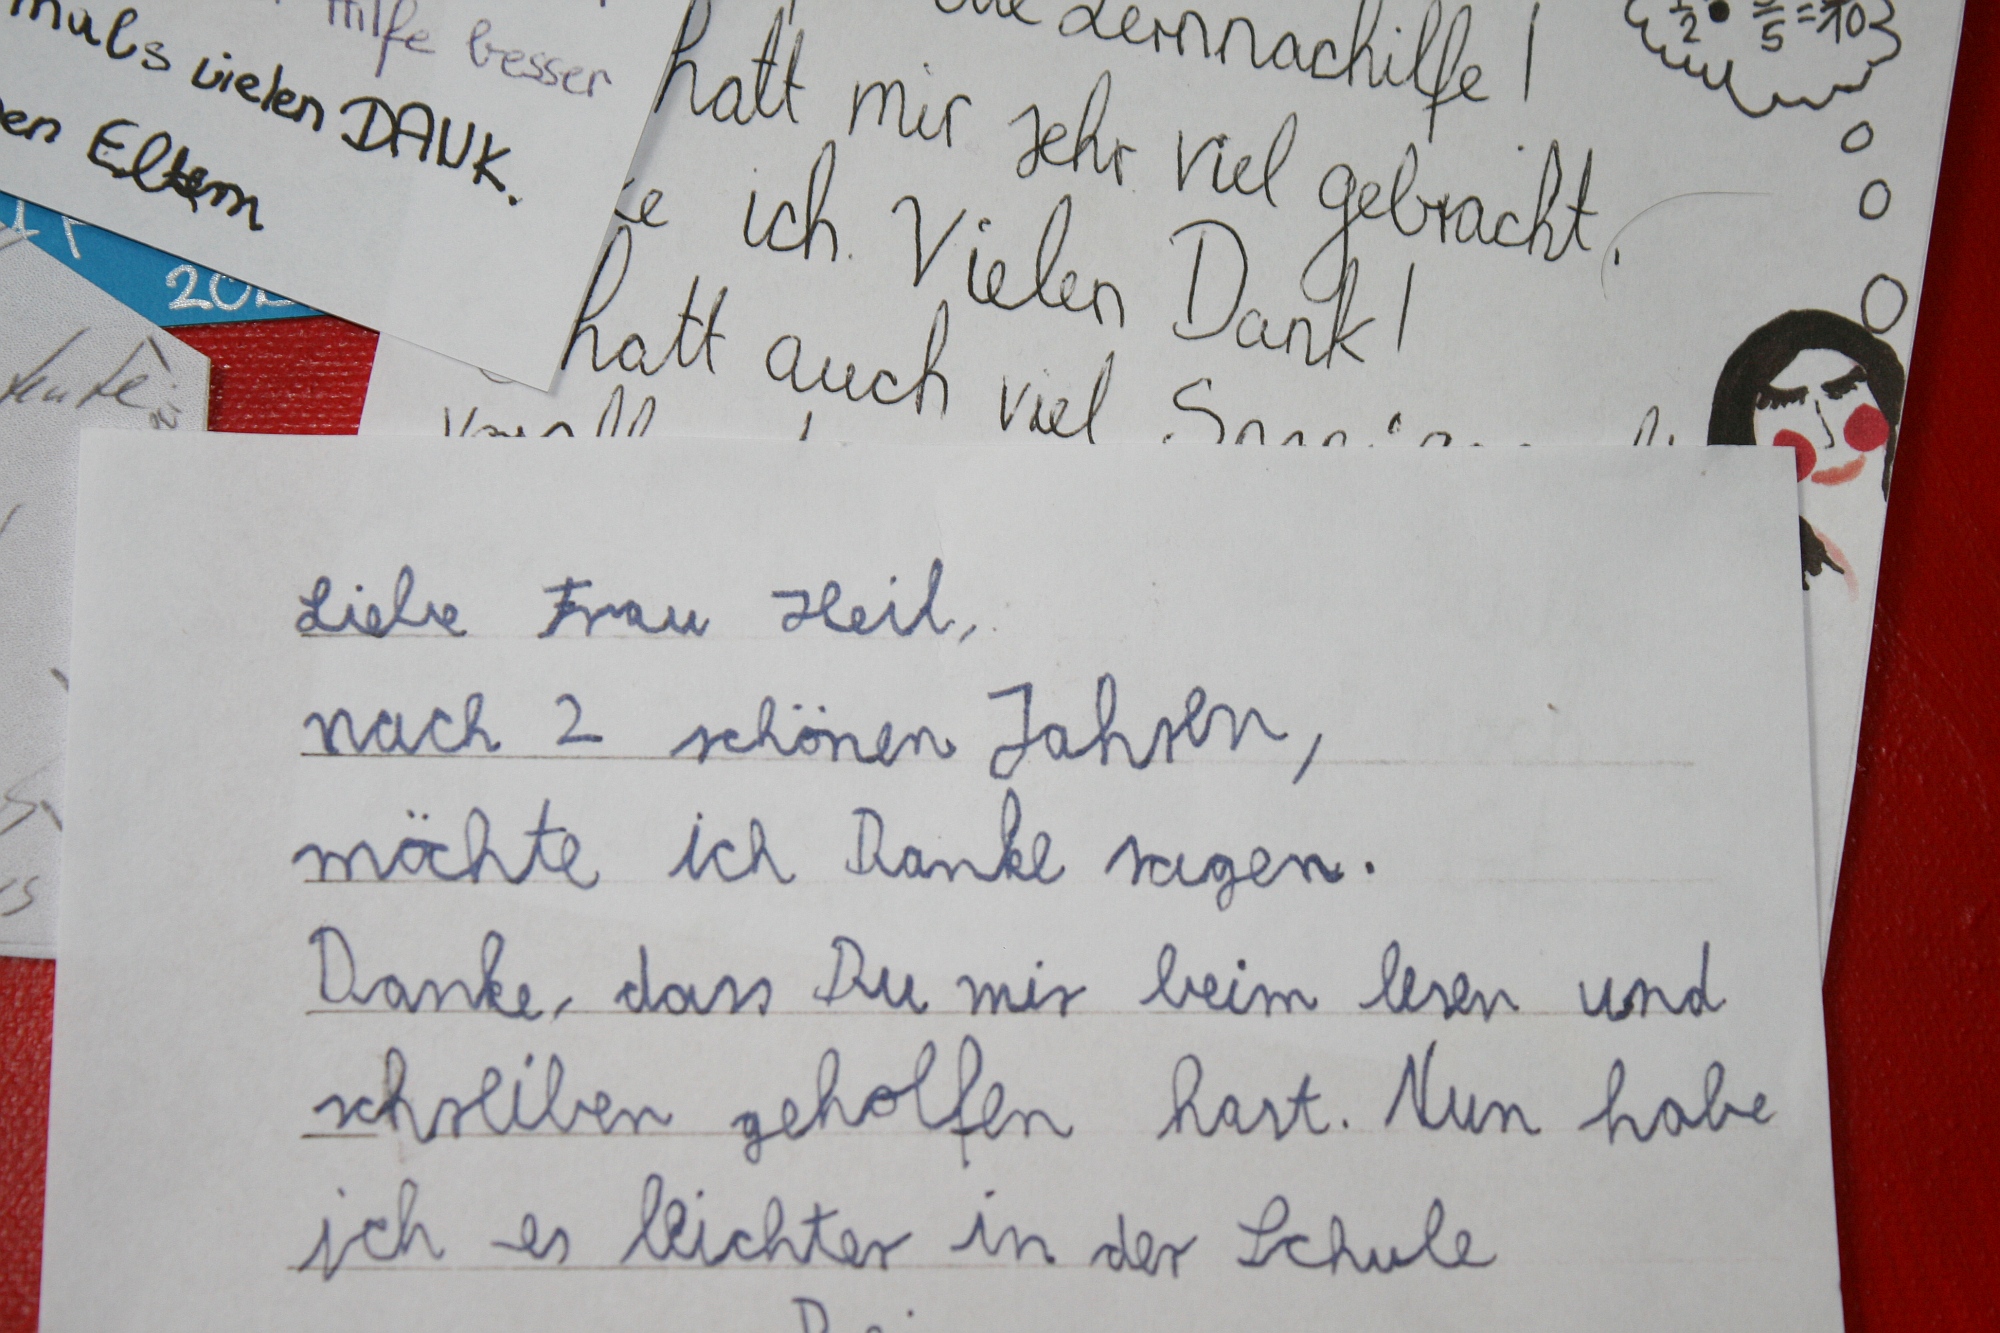 Hilfe besser
vielen DANK.
Eltern
202
Leute
Lernnachilfe!
hatt mir sehr viel gebracht.
ich. Vielen Dank!
hatt auch viel
Liebe Frau Heil,
nach 2 schönen Jahren,
möchte ich Danke sagen.
Danke, dass Du mir beim lesen und
schreiben geholfen hast. Nun habe
ich es leichter in der Schule